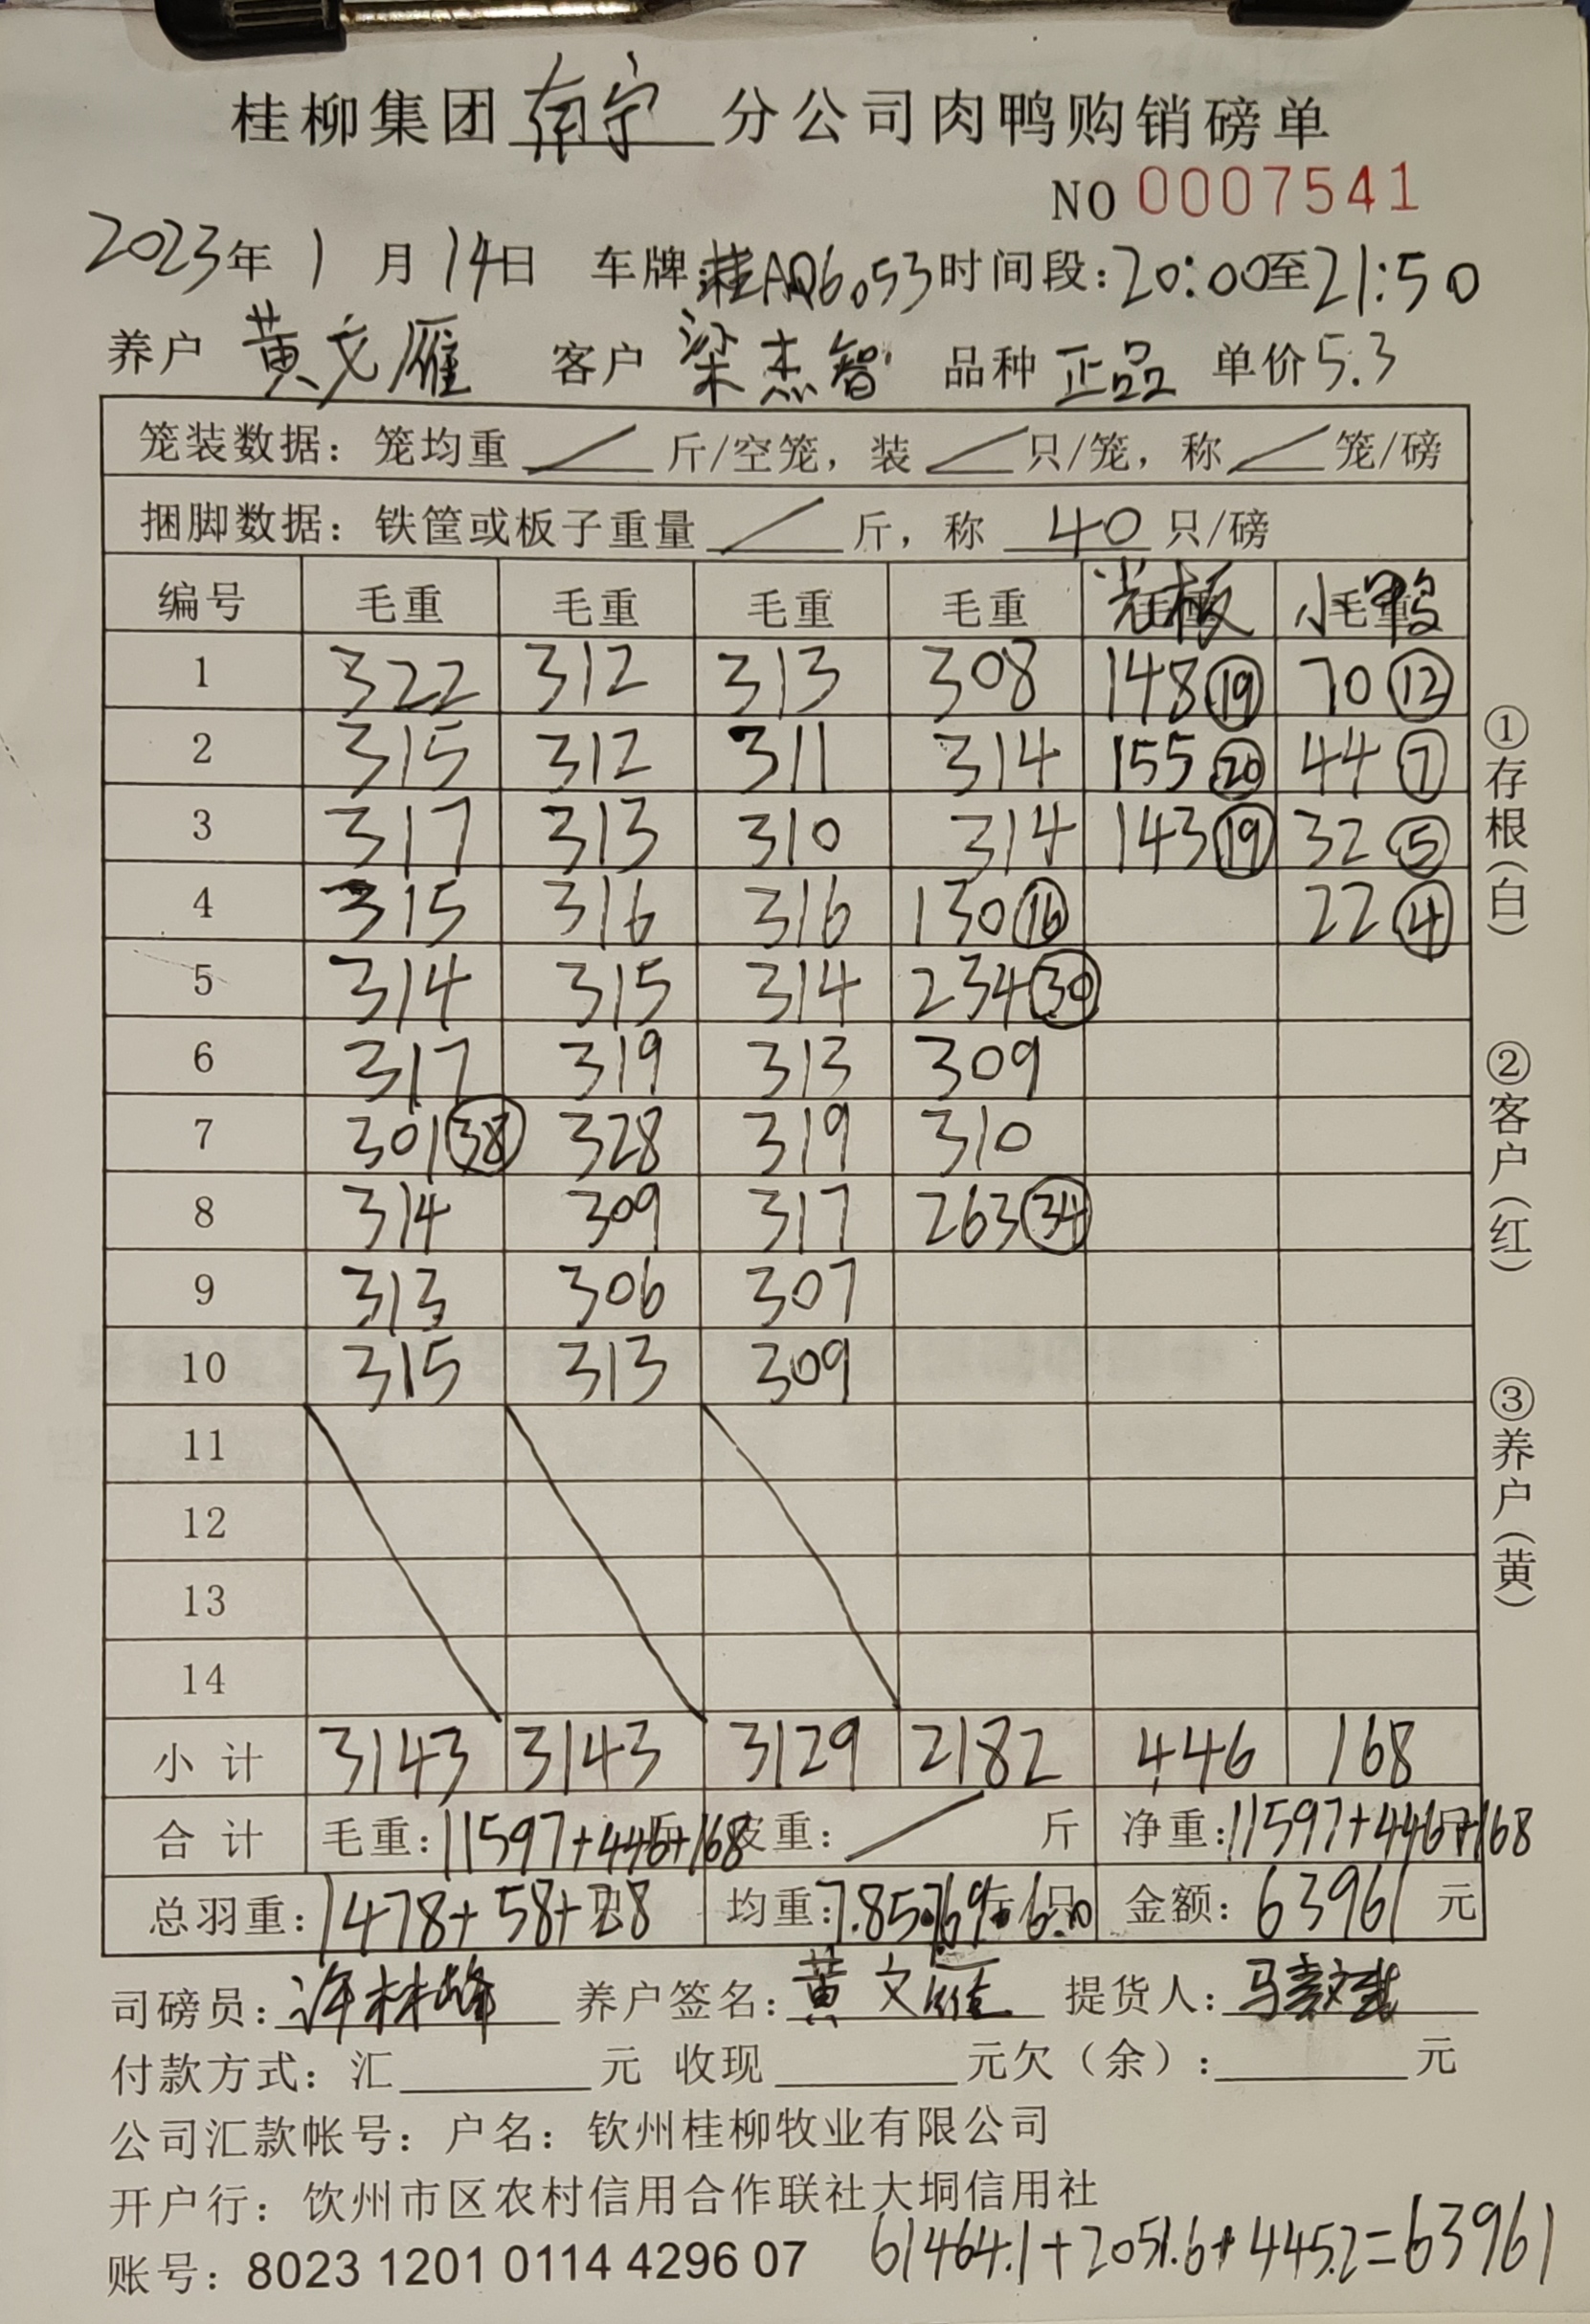 桂柳集团南宁分公司肉鸭购销磅单
NO 0007541
2023年 1 月 14日 车牌:桂AQ6053 时间段:20:00至21:50
养户 黄文雁 客户 梁杰智 品种 正品 单价5.3
笼装数据：笼均重 / 斤/空笼，装 / 只/笼，称 / 笼/磅
捆脚数据：铁筐或板子重量 / 斤，称 40 只/磅
编号 毛重 毛重 毛重 毛重 光板 小鸭
1 322 312 313 308 148⑲ 70⑫
2 315 312 311 314 155⑳ 44⑦
3 317 313 310 314 143⑲ 32⑤
4 315 316 316 130⑯ 22④
5 314 315 314 234㉚
6 317 319 313 309
7 301㊳ 328 319 310
8 314 309 317 263㉞
9 313 306 307
10 315 313 309
11
12
13
14
小计 3143 3143 3129 2182 446 168
合计 毛重:11597+446+168 皮重: / 斤 净重:11597+446+168
总羽重:1478+58+28 均重:7.85 7.69 6.0 金额:63961元
司磅员:许林峰 养户签名:黄文雁 提货人:马
付款方式：汇 元 收现 元欠（余）: 元
公司汇款帐号：户名：钦州桂柳牧业有限公司
开户行：钦州市区农村信用合作联社大垌信用社
账号：8023 1201 0114 4296 07
61464.1+2051.6+445.2=63961
①存根(白)
②客户(红)
③养户(黄)